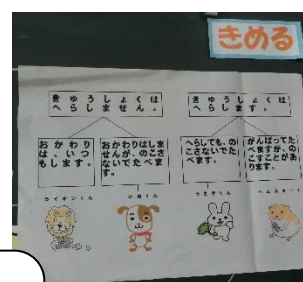 きめる
きゅうしょくは
へらしません。
きゅうしょくは
へらします。
おかわり
は、いつ
もします。
おかわりはしま
せんが、のこさ
ないでたべま
す。
へらしても、の
こさないでた
べます。
がんばってた
べますが、の
こすことがあ
ります。
ライオンくん
いぬくん
うさぎくん